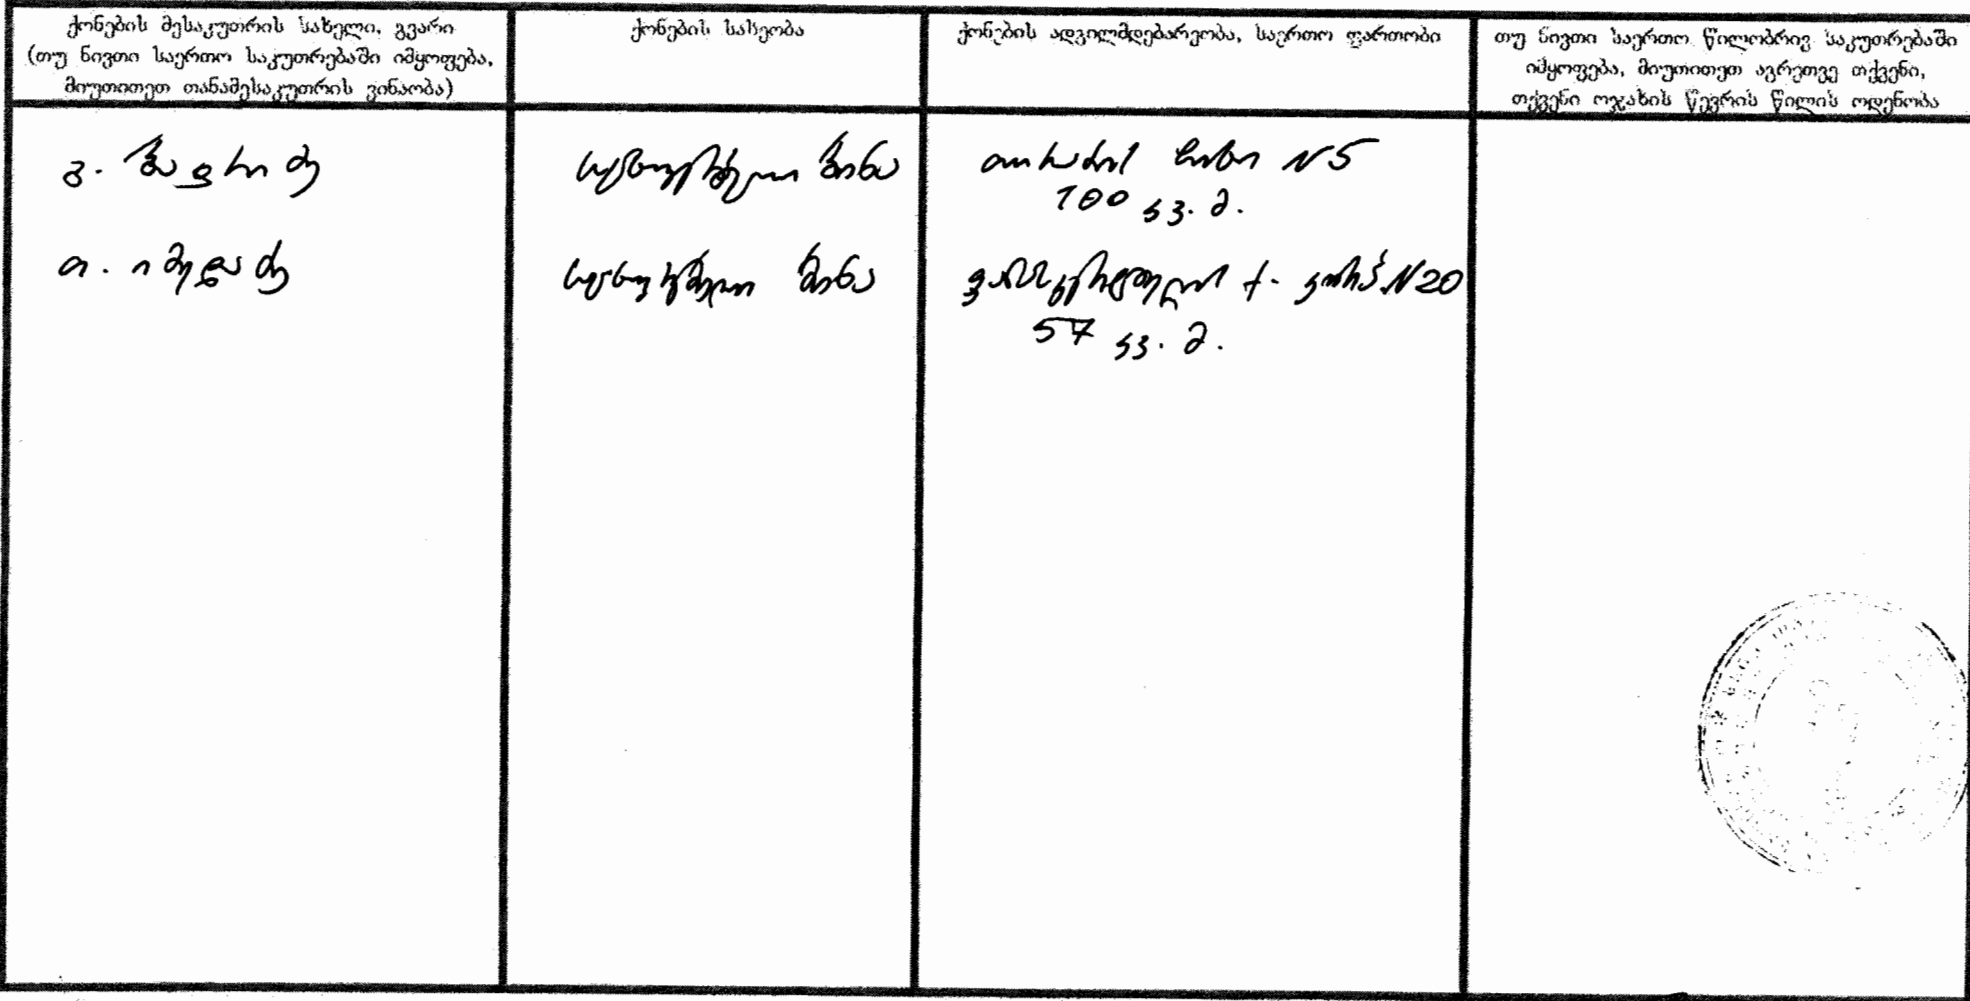 ქონების მესაკუთრის სახელი, გვარი
(თუ ნივთი საერთო საკუთრებაში იმყოფება,
მიუთითეთ თანამესაკუთრის ვინაობა)
ქონების სახეობა
ქონების ადგილმდებარეობა, საერთო ფართობი
თუ ნივთი საერთო წილობრივ საკუთრებაში
იმყოფება, მიუთითეთ აგრეთვე თქვენი,
თქვენი ოჯახის წევრის წილის ოდენობა
გ.
საცხოვრებელი ბინა
N5
100 კვ. მ.
თ. იმედაძე
საცხოვრებელი ბინა
ქ. N20
57 კვ. მ.